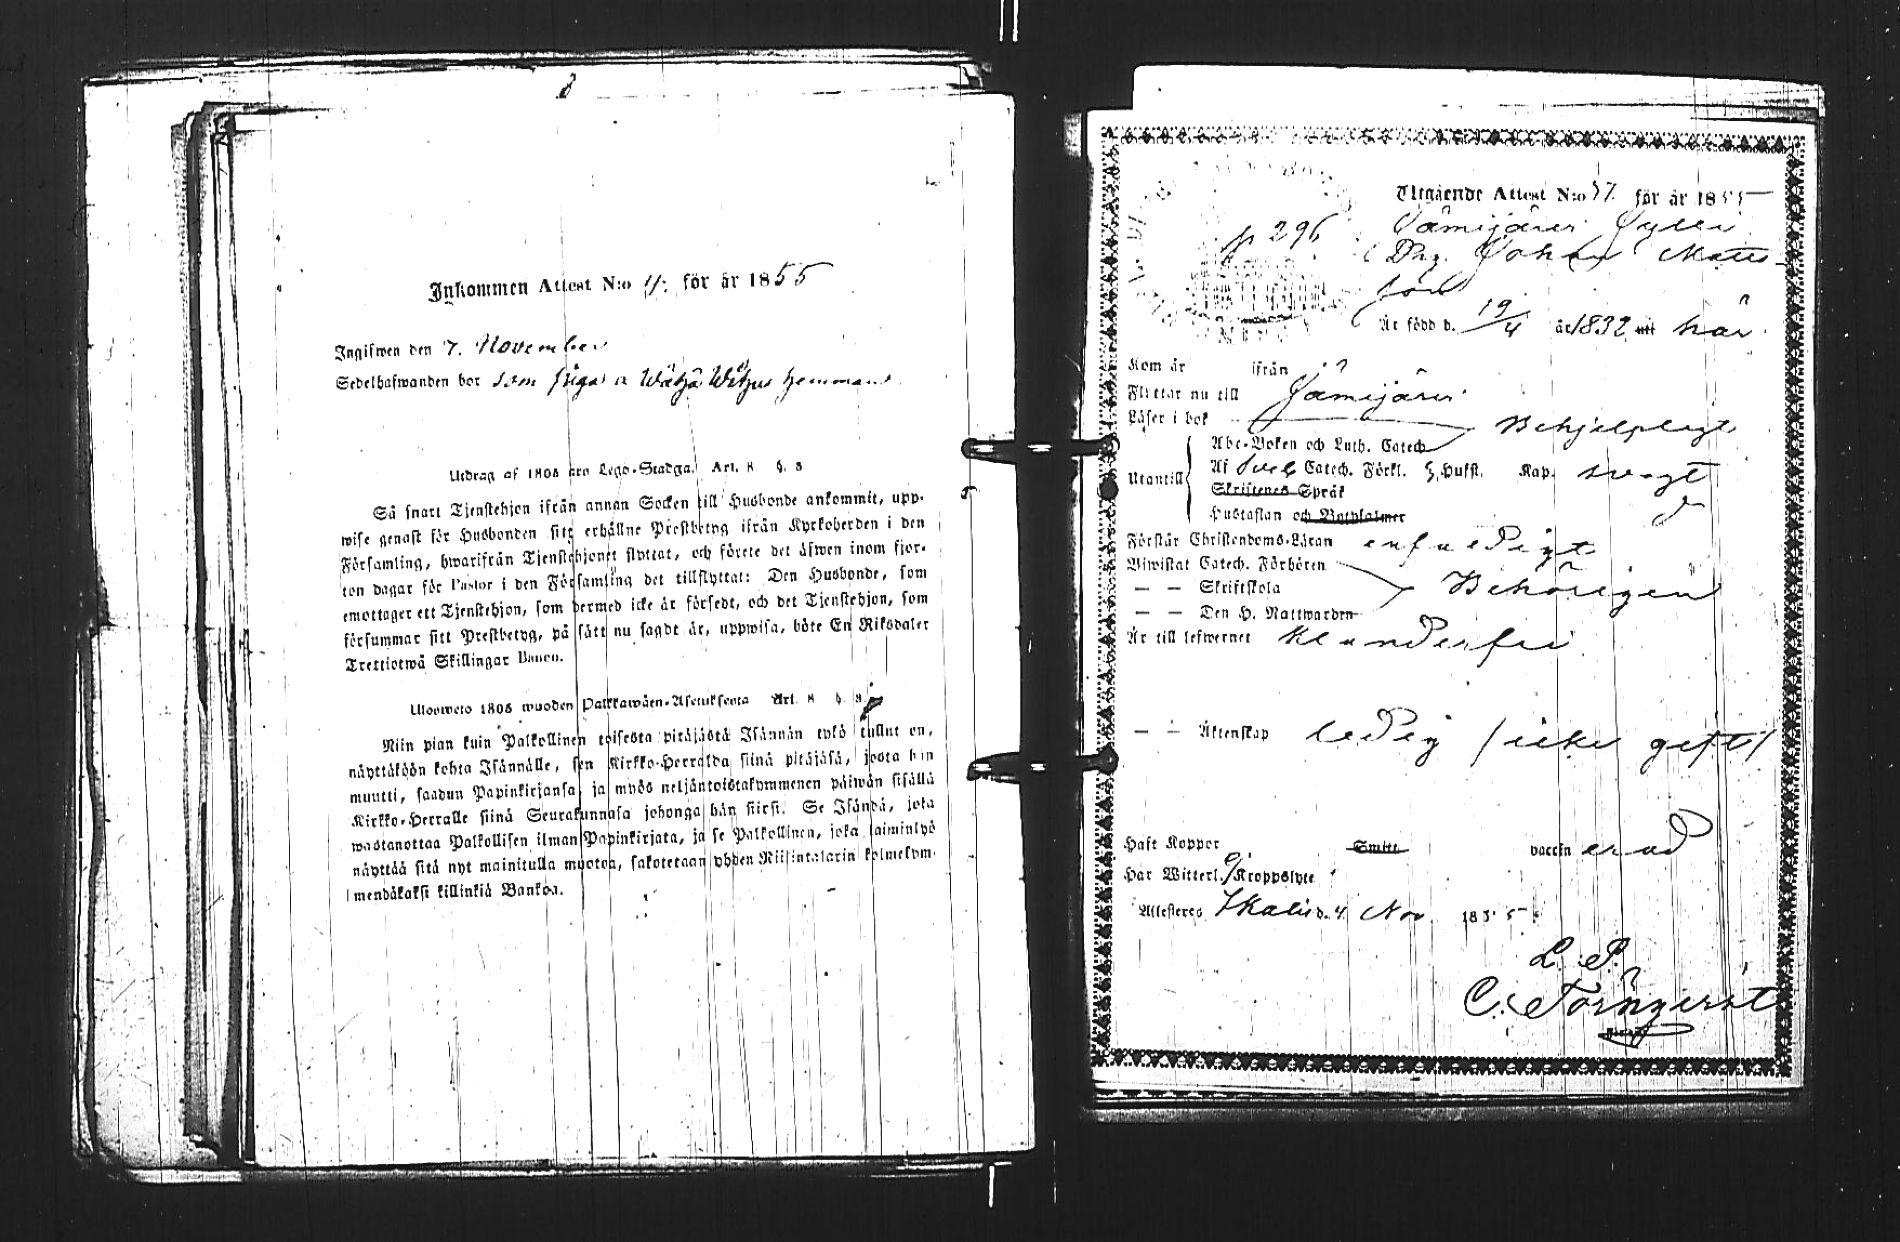 8
Inkommen Attest N:o 11. för år 1855
Ingifwen den 7. November
Sedelhafwanden bor som piga à hemman
Utdrag af 1805 års Lego-Stadga. Art. 8 §. 8
Så snart Tjenstehjon ifrån annan Socken till Husbonde ankommit, upp-
wise genast för Husbonden sitt erhållne Prestbetyg ifrån Kyrkoherden i den
Församling, hwarifrån Tjenstehjonet flyttat, och förete det äfwen inom fjor-
ton dagar för Pastor i den Församling det tillflyttat: Den Husbonde, som
emottager ett Tjenstehjon, som dermed icke är försedt, och det Tjenstehjon, som
försummar sitt Prestbetyg, på sätt nu sagdt är, uppwisa, böte En Riksdaler
Trettiotwå Skillingar Banco.
Ulosweto 1805 wuoden Palkkawäen-Asetuksesta Art. 8 §. 8
Niin pian kuin Palkollinen toisesta pitäjästä Isännän tykö tullut on,
näyttäköön kohta Isännälle, sen Kirkko-Herralda siinä pitäjäsä, josta hän
muutti, saadun Papinkirjansa, ja myös neljäntoistakymmenen päiwän sisällä
Kirkko-Herralle siinä Seurakunnasa johonga hän siirsi. Se Isändä, joka
wastanottaa Palkollisen ilman Papinkirjata, ja se Palkollinen, joka laiminlyö
näyttää sitä nyt mainitulla muotoa, sakotetaan yhden Riikintalarin kolmekym-
mendäkaksi killinkiä Bankoa.
Utgående Attest N:o 57 för år 1855
p 296 Jämijärvi
Drg. Johan Matts-
son
Är född d. 19/4 år 1832 här
Kom år ifrån
Flyttar nu till Jämijärvi
Läser i bok Behjelpligt
Abc-Boken och Luth. Catech.
Utantill Af Sveb. Catech. Förkl. Hufst. Kap. svagt
Skriftenes Språk
Hustaflan och Botpsalmer
Förstår Christendoms-Läran enfaldigt
Biwistat Catech. Förhören
— — Skriftskola Behörigen
— — Den H. Nattwarden
Är till lefwernet klanderfri
— — Äktenskap ledig /icke gift/
Haft Koppor Smitt vaccin erad
Har Witterl. Ej Kroppslyte
Attesteres Ikalis d. 4 Nov. 1855.
L. S.
C. Törnqvist